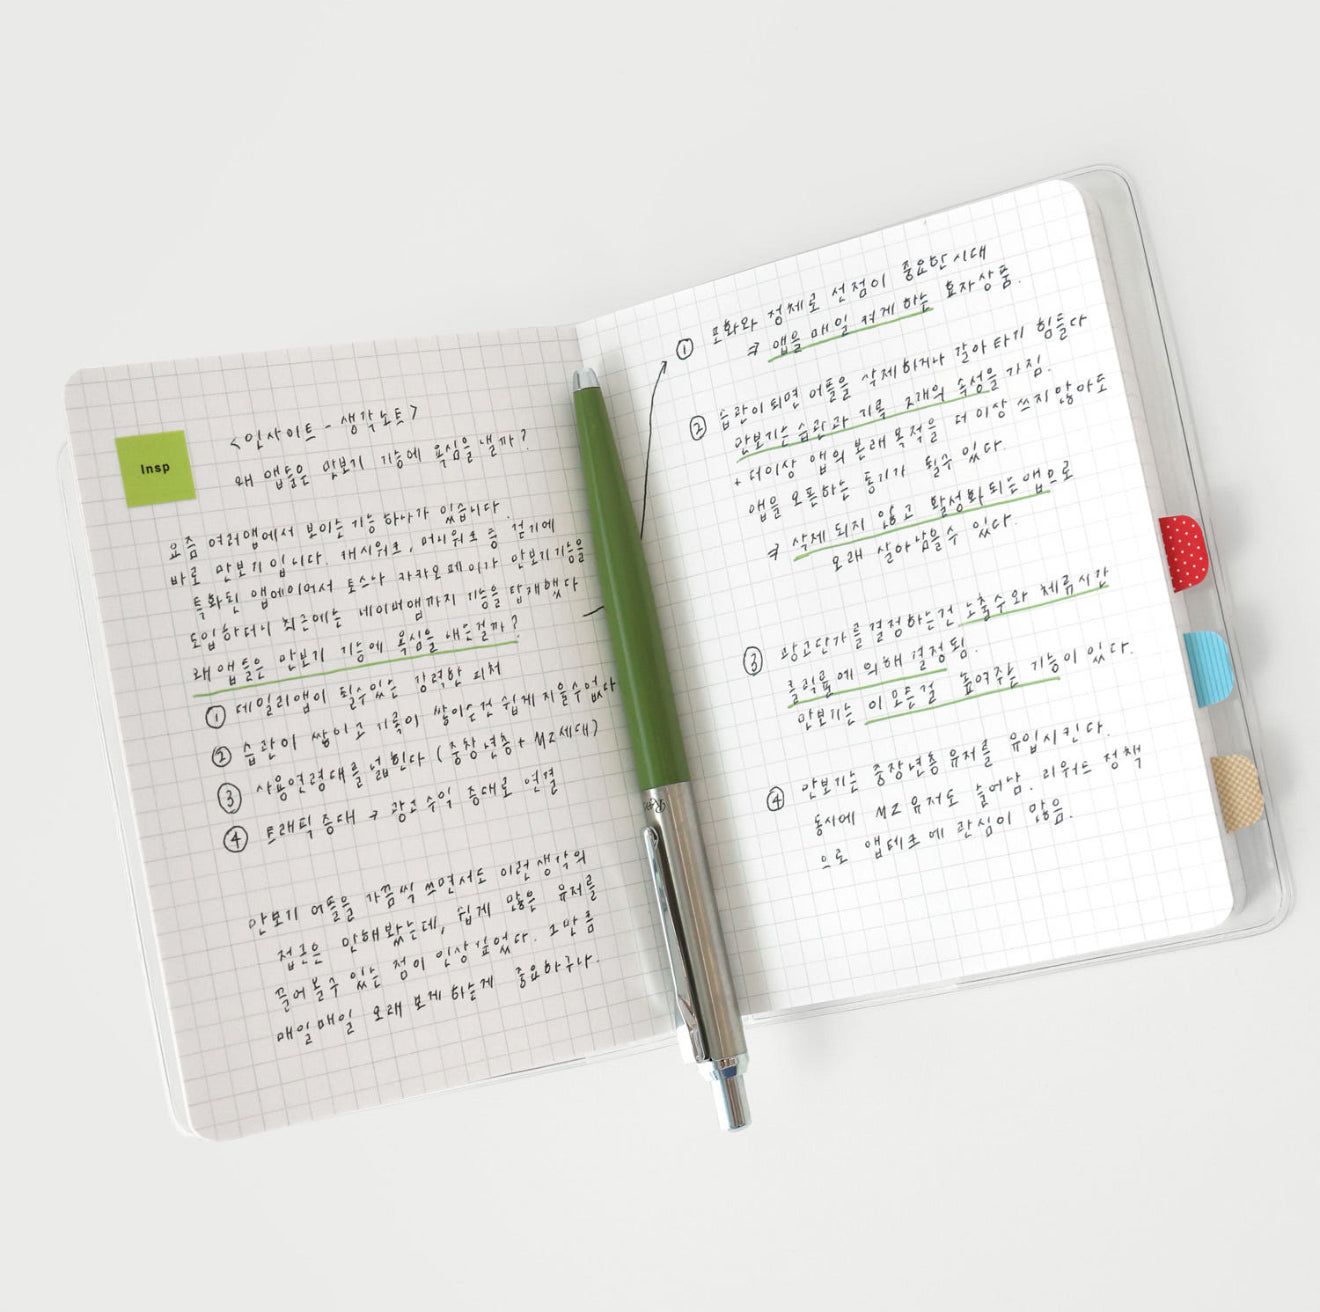 Insp
<인사이트 - 생각노트>
왜 앱들은 만보기 기능에 욕심을 낼까?
요즘 여러앱에서 보이는 기능 하나가 있습니다.
바로 만보기입니다. 캐시워크, 머니워크 등 걷기에
특화된 앱에이어서 토스나 카카오페이가 만보기기능을
도입하더니 최근에는 네이버앱까지 기능을 탑재했다
왜 앱들은 만보기 기능에 욕심을 내는걸까?
① 데일리앱이 될수있는 강력한 피쳐
② 습관이 쌓이고 기록이 쌓이는건 쉽게 지울수없다
③ 사용연령대를 넓힌다 (중장년층 + MZ세대)
④ 트래픽 증대 → 광고수익 증대로 연결
만보기 어플을 가끔씩 쓰면서도 이런 생각의
접근은 안해봤는데, 쉽게 많은 유저를
끌어올수 있는 점이 인상깊었다. 그만큼
매일매일 오래 보게 하는게 중요하구나.
① 포화와 정체로 선점이 중요한시대
⇒ 앱을 매일 켜게 하는 효자상품.
② 습관이되면 어플을 삭제하거나 갈아타기 힘들다
만보기는 습관과 기록 2개의 속성을 가짐.
+ 더이상 앱의 본래 목적을 더 이상 쓰지 않아도
앱을 오픈하는 동기가 될수 있다.
⇒ 삭제 되지 않고 활성화되는앱으로
오래 살아남을수 있다.
③ 광고단가를 결정하는건 노출수와 체류시간
클릭률에 의해 결정됨.
만보기는 이 모든걸 높여주는 기능이 있다.
④ 만보기는 중장년층 유저를 유입시킨다.
동시에 MZ 유저도 늘어남. 리워드 정책
으로 앱테크에 관심이 많음.